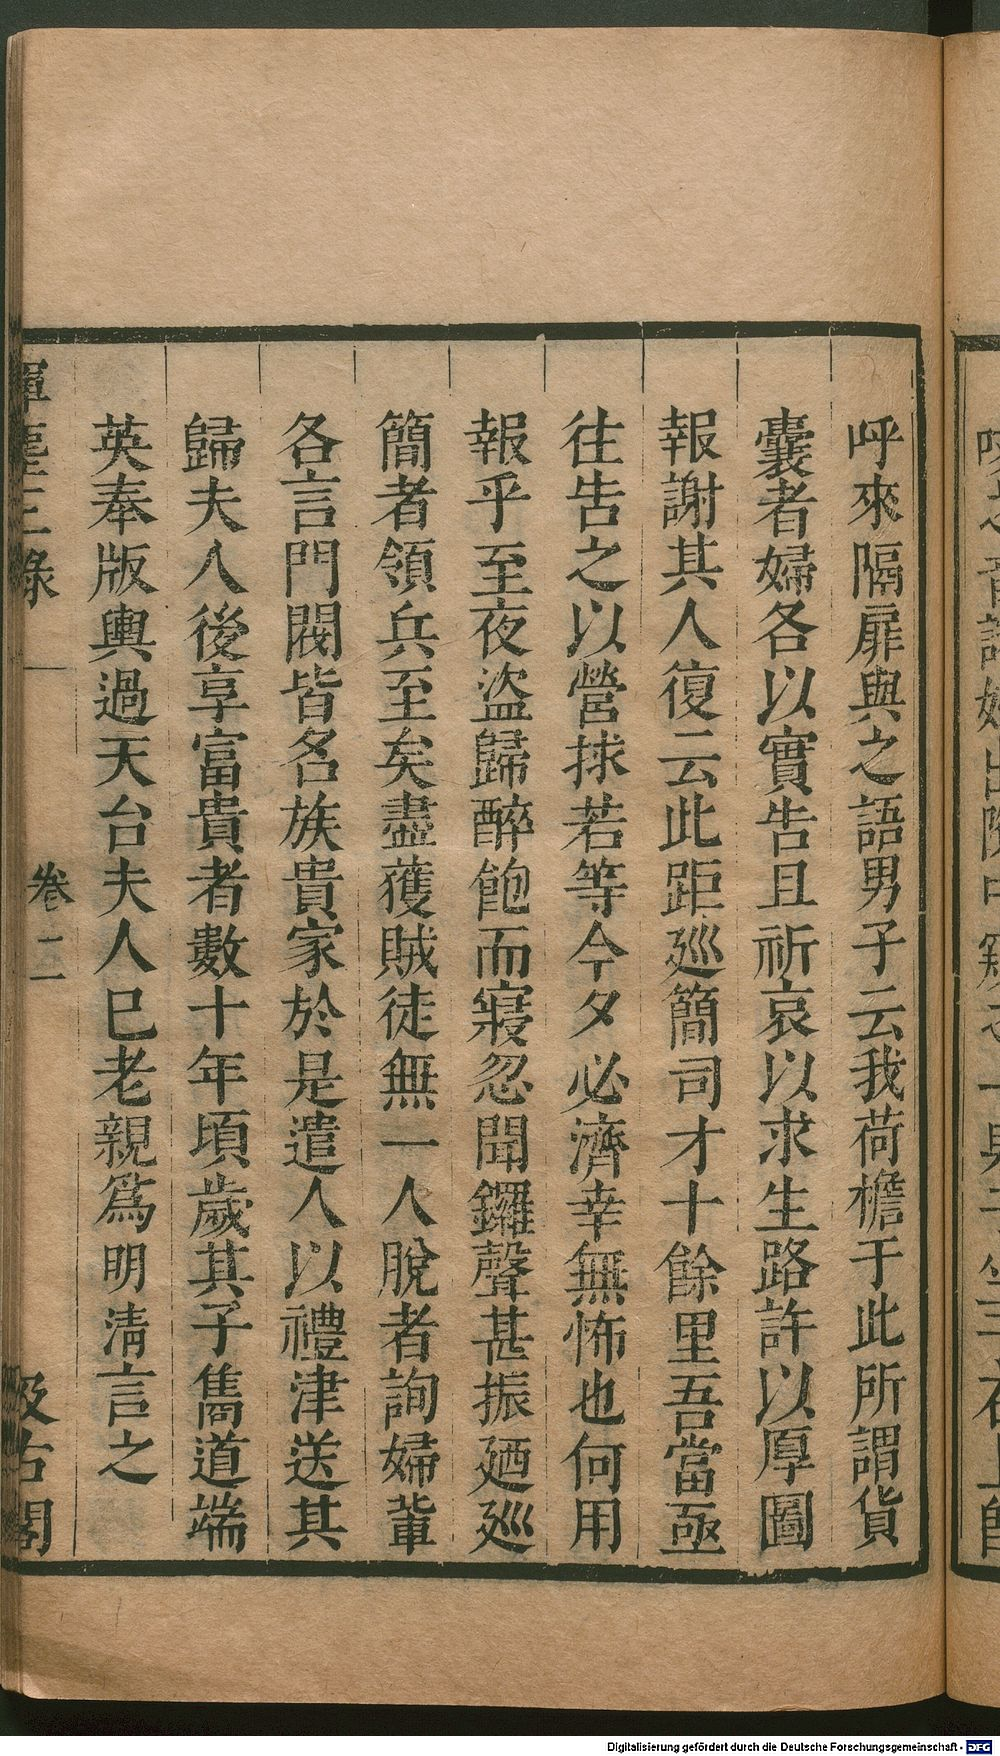 呼來隔扉與之語男子云我荷檐于此所謂貨
囊者婦各以實告且祈哀以求生路許以厚圖
報謝其人復云此距廵簡司才十餘里吾當亟
往告之以營捄若等今夕必濟幸無怖也何用
報乎至夜盜歸醉飽而寢忽聞鑼聲甚振廼廵
簡者領兵至矣盡獲賊徒無一人脫者詢婦軰
各言門閥皆名族貴家於是遣人以禮津送其
歸夫人後享富貴者數十年頃歲其子雋道端
英奉版輿過天台夫人巳老親爲明淸言之
揮麈三錄
卷二
汲古閣
Digitalisierung gefördert durch die Deutsche Forschungsgemeinschaft - DFG